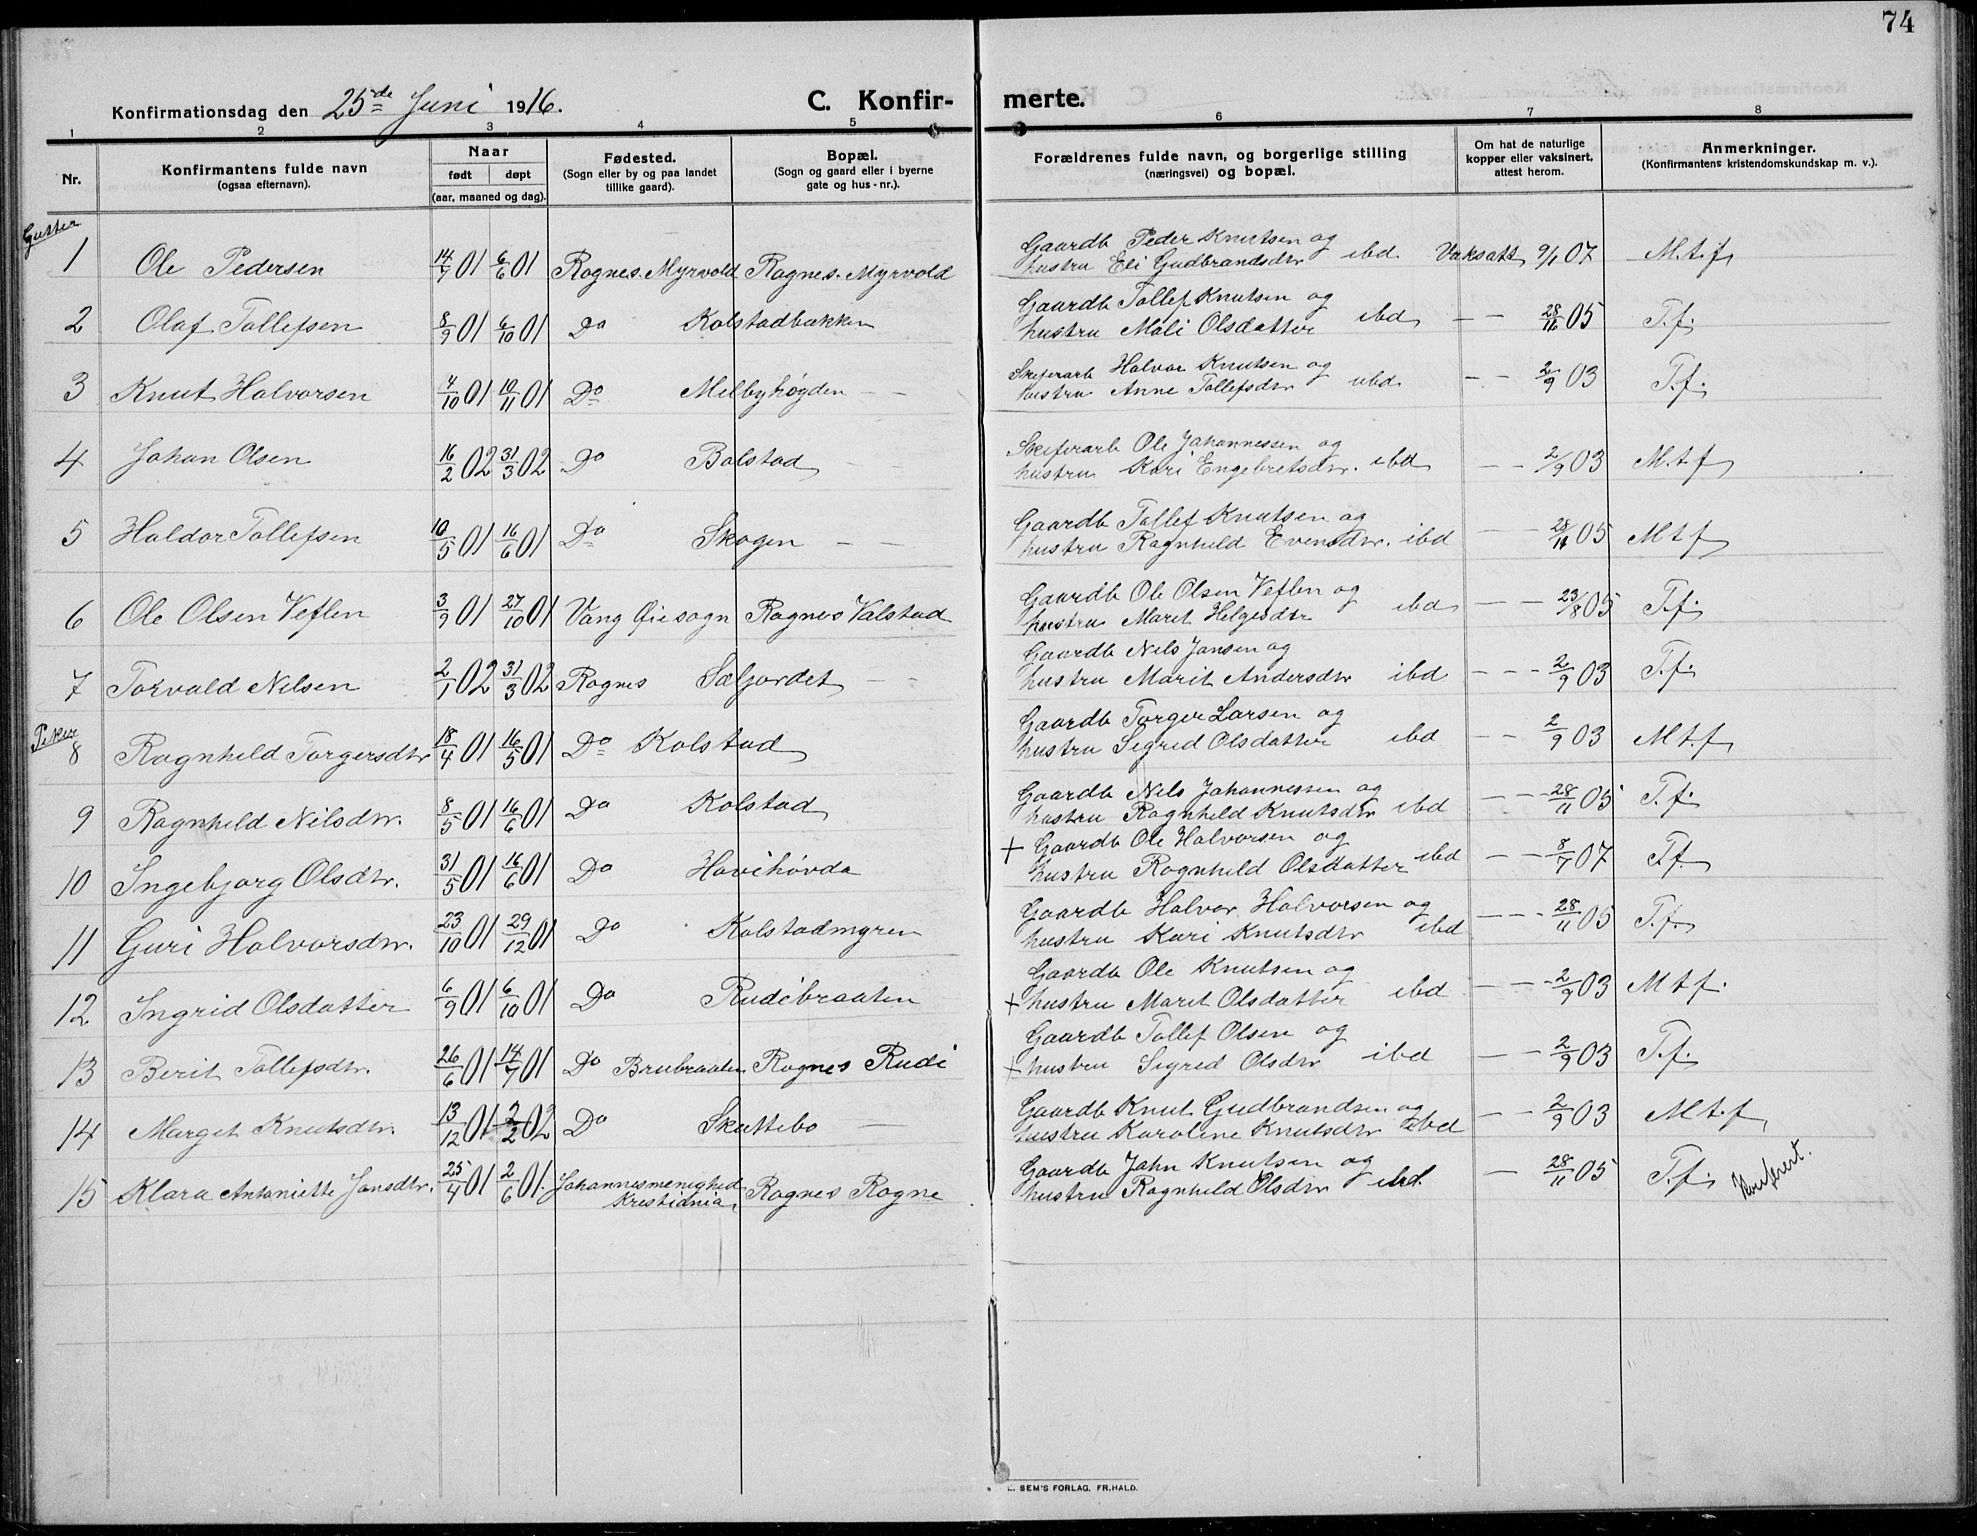 74
Konfirmationsdag den 25de Juni 1916.
C. Konfir- merte.
1 2 3 4 5 6 7 8
Nr.
Konfirmantens fulde navn
(ogsaa efternavn).
Naar
født døpt
(aar, maaned og dag).
Fødested.
(Sogn eller by og paa landet
tillike gaard).
Bopæl.
(Sogn og gaard eller i byerne
gate og hus-nr.).
Forældrenes fulde navn, og borgerlige stilling
(næringsvei) og bopæl.
Om hat de naturlige
kopper eller vaksinert,
attest herom.
Anmerkninger.
(Konfirmantens kristendomskundskap m. v.).
Gutter
1 Ole Pedersen 14/4 01 6/6 01 Rognes. Myrvold Rognes. Myrvold Gaardb Peder Knutsen og
hustru Eli Gudbrandsdtr ibd. Vaksatt 9/1 07 M.t.f
2 Olaf Tollefsen 8/9 01 6/10 01 Do Kolstadbakken Gaardb Tollef Knutsen og
hustru Mali Olsdatter ibd — — 28/11 05 T.f.
3 Knut Halvorsen 4/10 01 10/11 01 Do Melbyhøgden — — Skiferarb Halvor Knutsen og
hustru Anne Tollefsdtr ibd. — — 2/9 03 T.f.
4 Johan Olsen 16/2 02 31/3 02 Do Bolstad — Skiferarb Ole Johannessen og
hustru Kari Engebretsdtr. ibd — — 2/9 03 M.t.f
5 Haldor Tollefsen 10/5 01 16/6 01 Do Skogen — — Gaardb Tollef Knutsen og
hustru Ragnhild Evensdtr. ibd — — 28/11 05 M t f
6 Ole Olsen Veflen 3/9 01 27/10 01 Vang Øiesogn Rognes Valstad Gaardb Ole Olsen Veflen og
hustru Marit Helgesdtr ibd — — 23/8 05 T.f.
7 Torvald Nilsen 2/1 02 31/3 02 Rognes Sæljordet — — Gaardb Nils Jansen og
hustru Marit Andersdtr ibd — — — 2/9 03 T.f.
Piker
8 Ragnhild Torgersdtr 18/4 01 16/5 01 Do Kolstad Gaardb Torger Larsen og
hustru Sigrid Olsdatter ibd — — 2/9 03 M t.f
9 Ragnhild Nilsdtr. 8/5 01 16/6 01 Do Kolstad Gaardb Nils Johannessen og
hustru Ragnhild Knutsdtr ibd — — 28/11 05 T.f.
10 Ingebjorg Olsdtr. 31/5 01 16/6 01 Do Hovihövda + Gaardb Ole Halvorsen og
hustru Ragnhild Olsdatter ibd — — 8/7 07 T.f.
11 Guri Halvorsdtr. 23/10 01 29/12 01 Do Kolstadmyren Gaardb Halvor Halvorsen og
hustru Kari Knutsdtr ibd — — — 28/11 05 T.f.
12 Ingrid Olsdatter 6/9 01 6/10 01 Do Rudibraaten Gaardb Ole Knutsen og
+ hustru Marit Olsdatter ibd — — — 2/9 03 M t f.
13 Berit Tollefsdtr. 26/6 01 14/7 01 Do Brubraaten Rognes Rudi Gaardb Tollef Olsen og
+ hustru Sigrid Olsdtr ibd — — 2/9 03 T.f.
14 Marget Knutsdtr. 13/12 01 2/2 02 Do Skattebo — Gaardb Knut Gudbrandsen og
hustru Karoline Knutsdtr ibd — — 2/9 03 M t.f
15 Klara Antoniette Jonsdtr. 25/4 01 2/6 01. Johannesmenighed
Kristiania, Rognes Rogne Gaardb John Knutsen og
hustru Ragnhild Olsdtr ibd. — 28/11 05 T.f.
E. SEM'S FORLAG, FR.HALD.